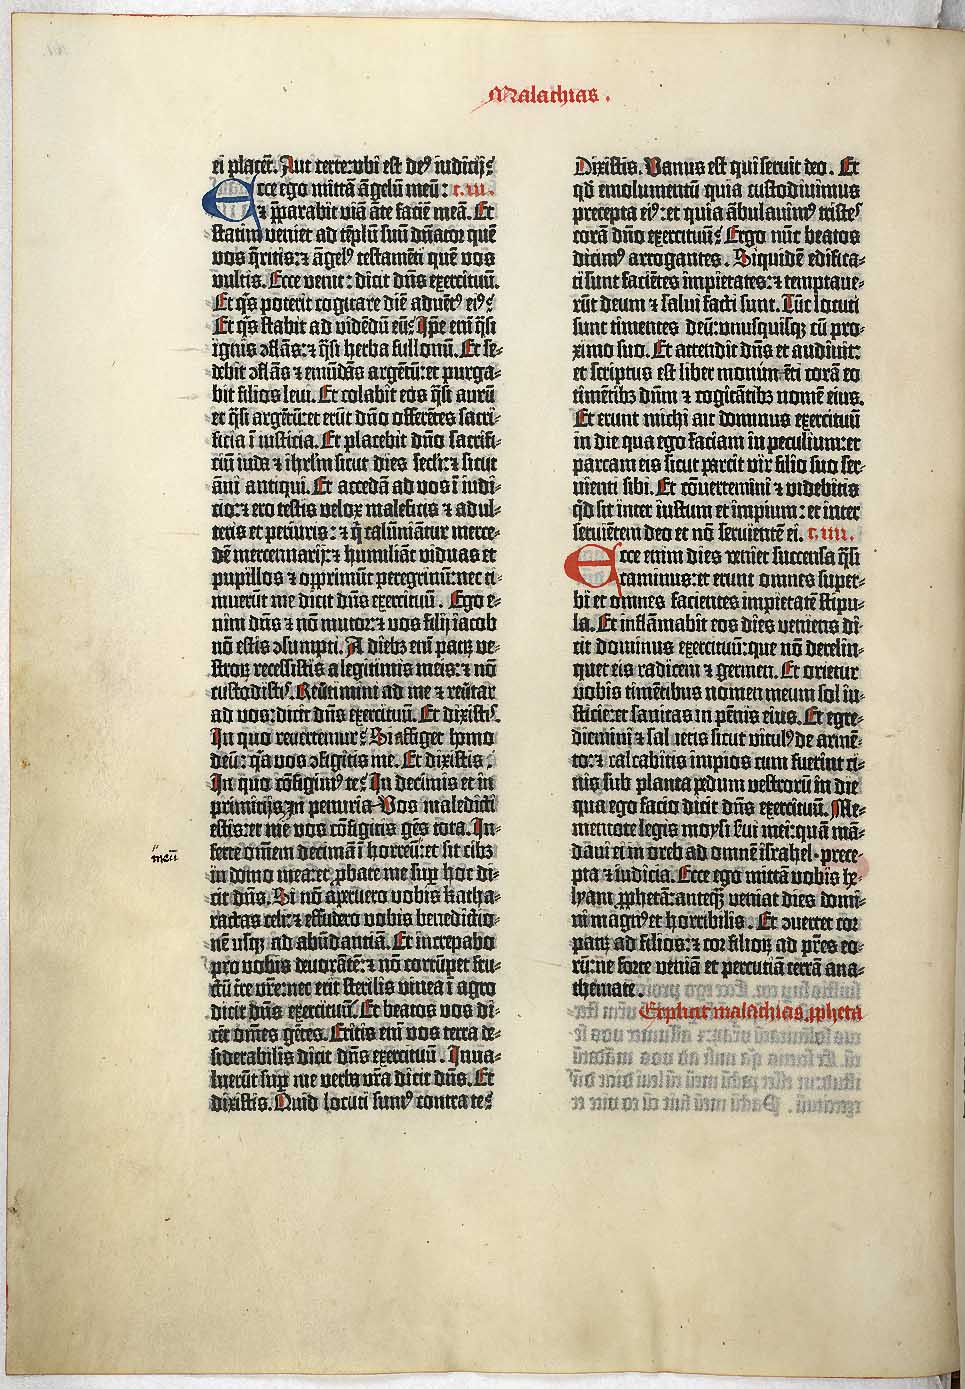 Malachias.
ei placēt. Aut certe:vbi est de⁹ iudicij:
Ecce ego mittā āgelū meū: c.iii.
⁊ p̄parabit viā āte faciē meā. Et
statim veniet ad tēplū suū dn̄ator quē
vos q̄ritis:⁊ āgel⁹ testamēti quē vos
vultis. Ecce venit: dicit dn̄s exercituū.
Et q̄s poterit cogitare diē aduēt⁹ ei⁹:
Et q̄s stabit ad vidēdū eū: Ip̄e eni q̄si
ignis ɔflās:⁊ q̄si herba fullonū. Et se-
debit ɔflās ⁊ emūdās argētū:et purga-
bit filios leui. Et colabit eos q̄si aurū
et q̄si argētū:et erūt dn̄o offerētes sacri-
ficia ī iusticia. Et placebit dn̄o sacrifi-
ciū iuda ⁊ ihrlm̄ sicut dies secl̄i:⁊ sicut
āni antiqui. Et accedā ad vos ī iudi-
cio:⁊ ero testis velox maleficis ⁊ adul-
teris et periuris: ⁊ q̄ calūniātur merce-
dē mercennarij:⁊ humiliāt viduas et
pupillos ⁊ opprimūt peregrinū:nec ti-
muerūt me dicit dn̄s exercituū. Ego e-
nim dn̄s ⁊ nō mutor:⁊ vos filij iacob
nō estis ɔsumpti. A diebꝫ eni patꝝ ve-
stroꝝ recessistis a legitimis meis:⁊ nō
custodisti⁹. Reūtimini ad me ⁊ reūtar
ad vos:dicit dn̄s exercituū. Et dixisti⁹.
In quo reuertemur: Si affiget homo
deū: q̄a vos ɔfigitis me. Et dixistis.
In quo cōfigim⁹ te: In decimis et in
primitijs. In penuria vos maledicti
estis:et me vos cōfigitis gēs tota. In-
ferte om̄em decimā ī horreū:et sit cibꝫ
meū
in domo mea:et ꝓbate me suꝑ hoc di-
cit dn̄s. Si nō aperuero vobis katha-
ractas celi:⁊ effudero vobis benedictio-
nē usqꝫ ad abūdantiā. Et increpabo
pro vobis deuorātē:⁊ nō corrūpet fru-
ctū tr̄e vr̄e:nec erit sterilis vinea ī agro
dicit dn̄s exercituū. Et beatos vos di-
cēt om̄es gētes. Eritis eni vos terra de-
siderabilis dicit dn̄s exercituū. Inua-
luerūt suꝑ me verba vr̄a dicit dn̄s. Et
dixistis. Quid locuti sum⁹ contra te:
Dixistis. Vanus est qui seruit deo. Et
qd̄ emolumentū quia custodiuimus
precepta ei⁹:et quia ābulauim⁹ triste⁹
corā dn̄o exercituū: Ergo nūc beatos
dicim⁹ arrogantes. Siquidē edifica-
ti sunt faciētes impietates:⁊ temptaue-
rūt deum ⁊ salui facti sunt. Tūc locuti
sunt timentes deū:vnusquisqꝫ cū pro-
ximo suo. Et attendit dn̄s et audiuit:
et scriptus est liber monumēti corā eo
timētibꝫ dn̄m ⁊ cogitātibꝫ nomē eius.
Et erunt michi ait dominus exercituū
in die qua ego faciam in peculium:et
parcam eis sicut parcit vir filio suo ser-
uienti sibi. Et cōuertemini ⁊ videbitis
qd̄ sit inter iustum et impium: et inter
seruiētem deo et nō seruientē ei. c.iiii.
Ecce enim dies veniet succensa q̄si
caminus:et erunt omnes super-
bi et omnes facientes impietatē stipu-
la. Et inflāmabit eos dies veniens di-
cit dominus exercituū:que nō derelin-
quet eis radicem ⁊ germen. Et orietur
vobis timētibus nomen meum sol iu-
sticie:et sanitas in pēnis eius. Et egre-
diemini ⁊ salietis sicut vitul⁹ de armē-
to:⁊ calcabitis impios cum fuerint ci-
nis sub planta pedum vestrorū in die
qua ego facio dicit dn̄s exercituū. Me-
mentote legis moysi s̄ui mei:quā mā-
daui ei in oreb ad omnē israhel.prece-
pta ⁊ iudicia. Ecce ego mittā vobis he-
lyam ꝓphetā:anteqꝫ veniat dies domi-
ni magn⁹ et horribilis. Et ɔuertet cor
patꝝ ad filios:⁊ cor filioꝝ ad pr̄es eo-
rū:ne forte veniā et percutiā terrā ana-
themate.
Explicit malachias ꝓpheta